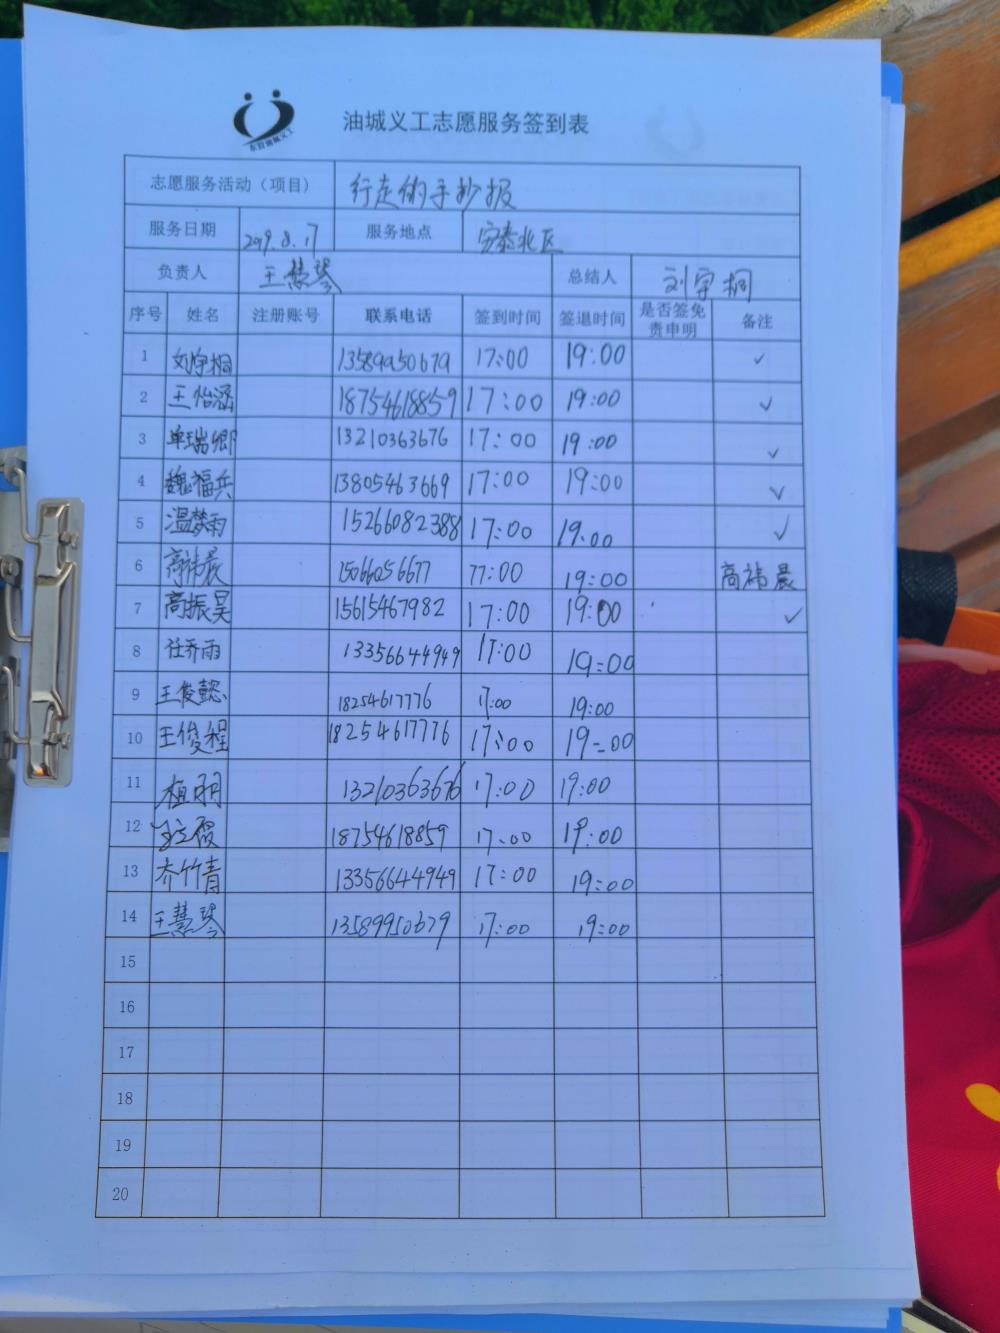 东营油城义工
油城义工志愿服务签到表
志愿服务活动（项目） 行走的手抄报
服务日期 2019.8.17 服务地点 安泰北区
负责人 王慧琴 总结人 刘宇桐
序号 姓名 注册账号 联系电话 签到时间 签退时间 是否签免责申明 备注
1 刘宇桐 13589950679 17:00 19:00 ✓
2 王怡涵 18754618859 17:00 19:00 ✓
3 单瑞卿 13210363676 17:00 19:00 ✓
4 魏福兵 13805463669 17:00 19:00 ✓
5 温梦雨 15266082388 17:00 19:00 ✓
6 高祎晨 15066056677 17:00 19:00 高祎晨
7 高振昊 15615467982 17:00 19:00 ✓
8 任乔雨 13356644949 17:00 19:00
9 王俊懿 18254617776 17:00 19:00
10 王俊程 18254617776 17:00 19:00
11 13210363676 17:00 19:00
12 18754618859 17:00 19:00
13 乔竹青 13356644949 17:00 19:00
14 王慧琴 13589950679 17:00 19:00
15
16
17
18
19
20